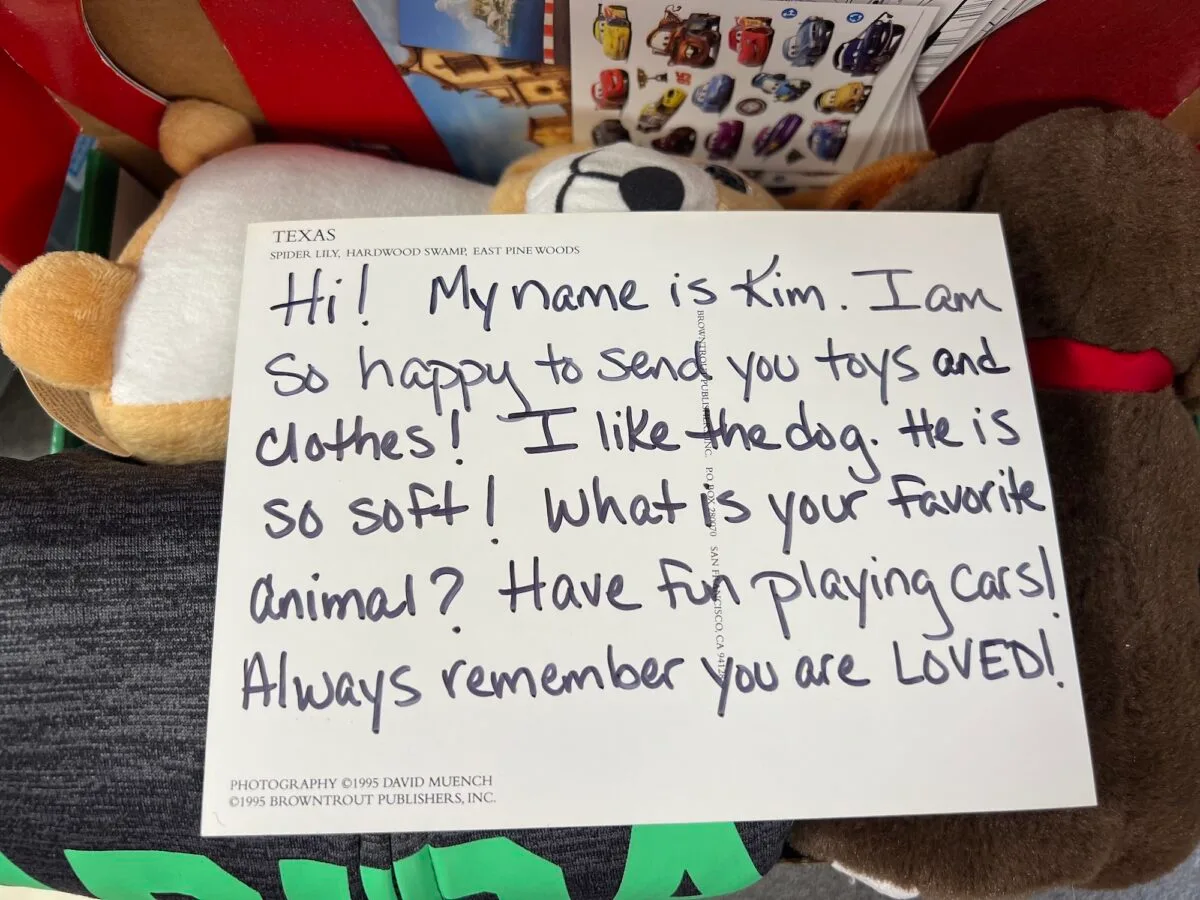 TEXAS
SPIDER LILY, HARDWOOD SWAMP, EAST PINE WOODS
Hi! My name is Kim. I am
so happy to send you toys and
clothes! I like the dog. He is
so soft! What is your favorite
animal? Have fun playing cars!
Always remember you are LOVED!
BROWNTROUT PUBLISHERS, INC. P.O. BOX 280070 SAN FRANCISCO, CA 94128
PHOTOGRAPHY ©1995 DAVID MUENCH
©1995 BROWNTROUT PUBLISHERS, INC.